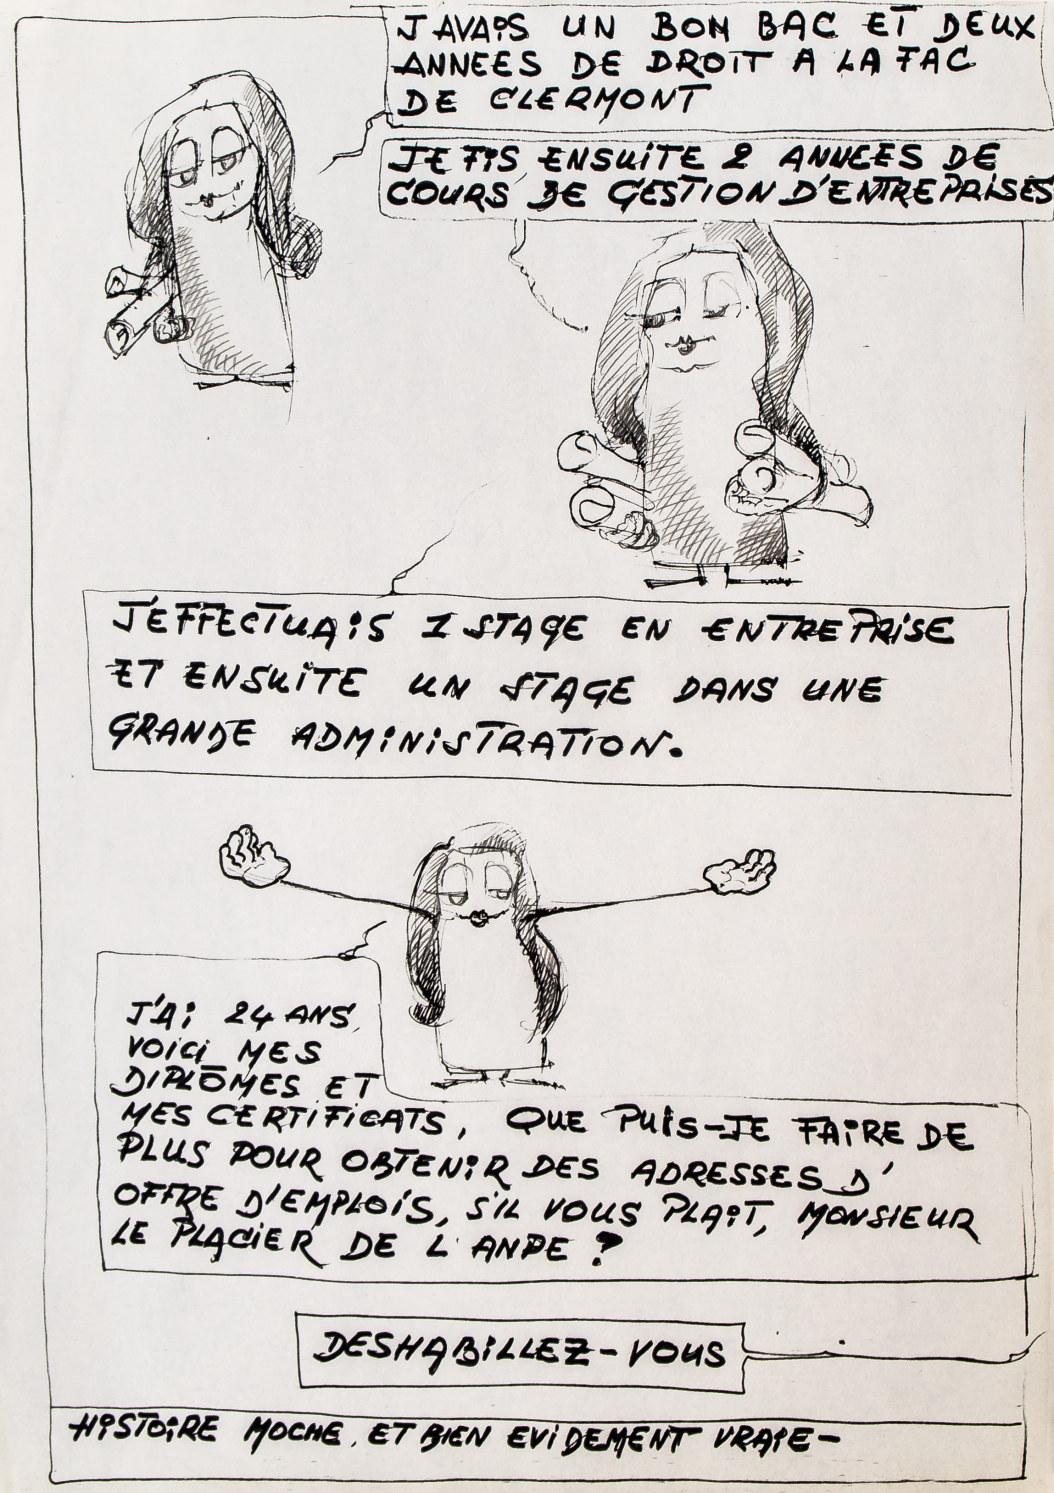 JAVAIS UN BON BAC ET DEUX
ANNEES DE DROIT A LA FAC
DE CLERMONT
JE FIS ENSUITE 2 ANNEES DE
COURS DE GESTION D'ENTREPRISES
J'EFFECTUAIS 1 STAGE EN ENTREPRISE
ET ENSUITE UN STAGE DANS UNE
GRANDE ADMINISTRATION.
J'AI 24 ANS,
VOICI MES
DIPLÔMES ET
MES CERTIFICATS, QUE PUIS-JE FAIRE DE
PLUS POUR OBTENIR DES ADRESSES D'
OFFRE D'EMPLOIS, S'IL VOUS PLAIT, MONSIEUR
LE PLACIER DE L'ANPE ?
DESHABILLEZ-VOUS
HISTOIRE MOCHE. ET BIEN EVIDEMENT VRAIE-